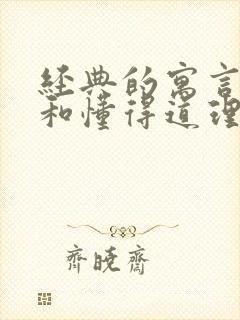 经典的寓言
和懂得道理
齊曉齋